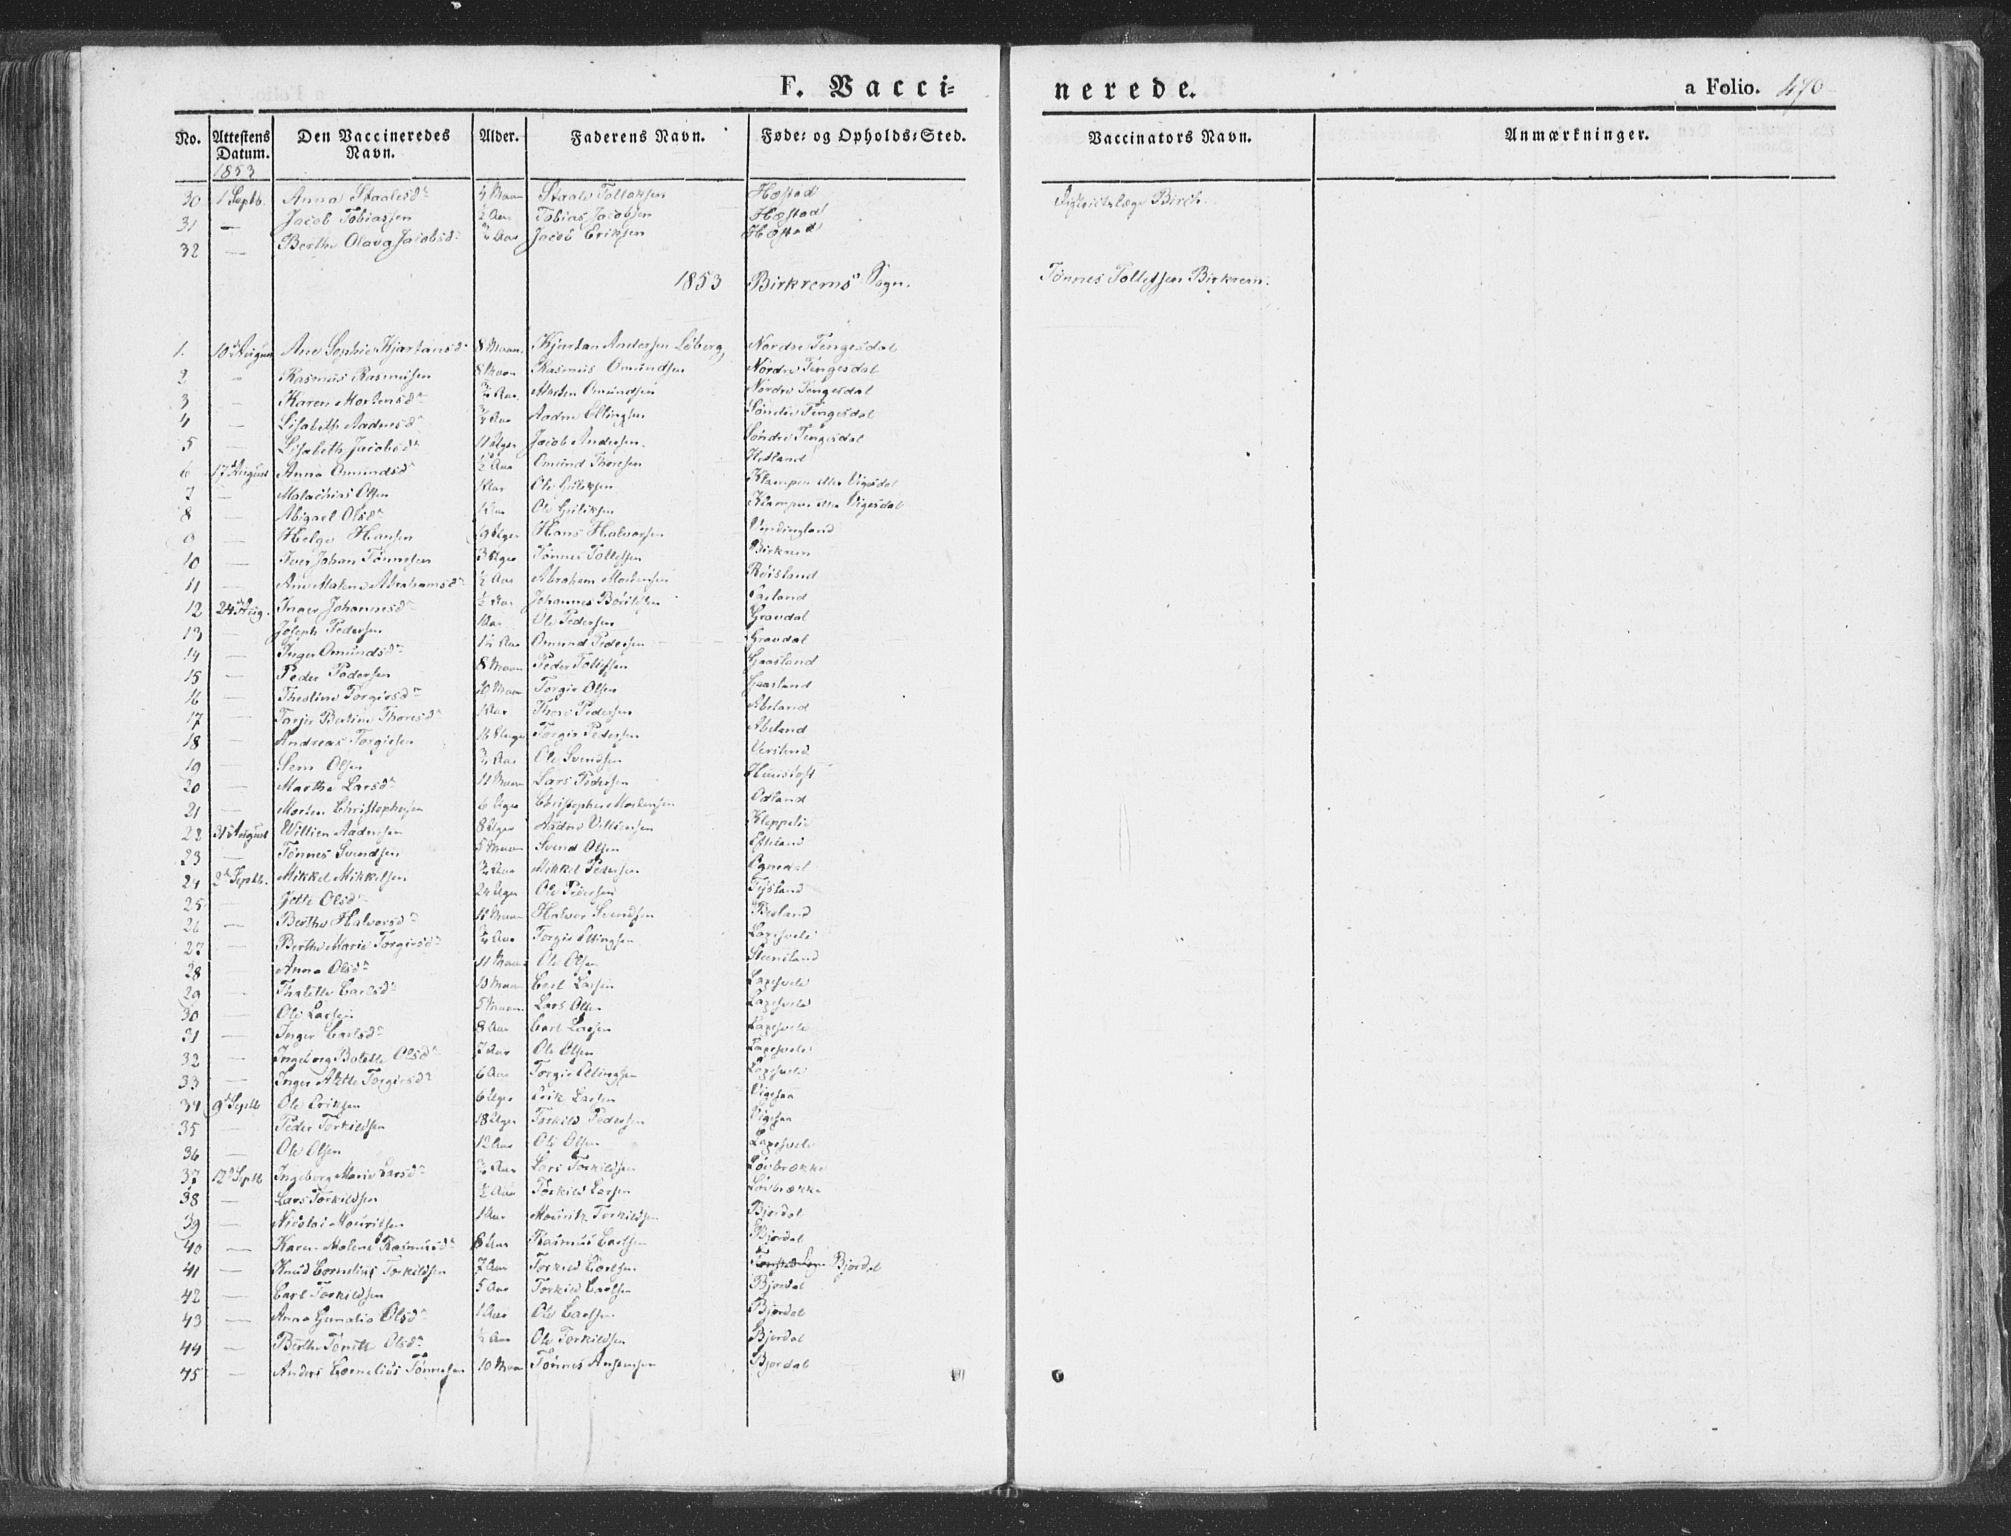 F. Vacci-
nerede.
a Folio. 470
No. Attestens Datum. Den Vaccineredes Navn. Alder. Faderens Navn. Føde- og Opholds-Sted. Vaccinators Navn. Anmærkninger.
1853
30 1 Septb. Anna Staalesdr ¼ Staale Tollaksen Hæstad Distriktslæge Birch.
31 — Jacob Tobiassen ½ Aar Tobias Jacobsen Hæstad
32 — Berthe Olava Jacobsdr ¾ Aar Jacob Eriksen Hæstad
1853 Birkrems Sogn. Tønnes Tollefsen Birkrem.
1. 10d August Ane Sophie Kjartansdr 8 Maan Kjartan Andersen Løberg Nordre Tengesdal
2 - Rasmus Rasmusen 8 Maan Rasmus Omundsen Nordre Tengesdal
3 - Karen Mortensdr ¾ Aar Morten Omundsen Nordre Tengesdal
4 - Lisabeth Aadnesdr ¾ Aar Aadne Ellingsen Søndre Tengesdal
5 - Lisabeth Jacobsdr 11 Uger Jacob Andersen Søndre Tengesdal
6 17d August Anna Omundsdr ½ Aar Omund Thoresen Hetland
7 — Malachias Olsen 1 Aar Ole Klampen eller Vigesdal
8 — Abigael Olsdr 1 Aar Ole Klampen eller Vigesdal
9 — Helge Hansen 19 Uger Hans Halvorsen
10 — Iver Johan Tønnesen 3 Uger Tønnes Tollefsen Birkrem
11 — Ane Malene Abrahamsdr ½ Aar Abraham Mortensen Røisland
12 24d Aug. Inger Johannesdr ½ Aar Johannes
13 — Joseph Pedersen 1 Aar Ole Pedersen Gravdal
14 — Inger Omundsdr 1½ Aar Omund Pedersen Gravdal
15 — Peder Pedersen 8 Maan Peder Tollefsen Gaasland
16 — Thesline Torgiersdr 10 Maan Torgier Olsen Gaasland
17 — Torger Bertine Thoresdr 1 Aar Thore Pedersen Abeland
18 — Andreas Torgiersen 16 Uger Torgier Pedersen Abeland
19 — Sem Olsen ¾ Aar Ole Svendsen
20 — Marthe Larsdr 11 Maan Lars Pedersen
21 — Morten Christophersen 6 Uger Christopher Mortensen Odland
22 31d August Willien Aadnesen 8 Uger Aadne Villiensen Kleppelie
23 — Tønnes Svendsen 5 Maan Svend Olsen Efteland
24 2d Septb. Mikkel Mikkelsen ¾ Aar Mikkel Pedersen Ognedal
25 — Jette Olsdr 24 Uger Ole Pedersen
26 — Berthe Halvorsdr Maan Halvor Svendsen
27 — Berthe Marie Torgiersdr ¾ Aar Torgier Ellingsen Lagesvele
28 Anna Olsdr 11 Maan Ole Olsen Steensland
29 — Thalette Carlsdr 10 Maan Carl Larsen Lagesvele
30 — Ole Larsen 5 Maan Lars Olsen Lagesvele
31 — Inger Carlsdr 8 Aar Carl Larsen Lagesvele
32 — Ingeborg Bolette Olsdr 7 Aar Ole Olsen Lagesvele
33 — Inger Torgiersdr 6 Aar Torgier Ellingsen Lagesvele
34 9d Septb Ole Eriksen 6 Uger Erik Larsen Vigesaa
35 — Peder Torkildsen 18 Uger Torkild Pedersen Vigesaa
36 — Ole Olsen 12 Aar Ole Olsen Lagesvele
37 12d Septb Ingeborg Marie Larsdr ¾ Aar Lars Torkildsen Løvbrække
38 — Lars Torkildsen ½ Aar Torkild Larsen Løvbrække
39 — Nicolai Mouritsen 1 Aar Mourits Torkildsen Bjordal
40 — Karen Malene Rasmusdr 8 Aar Rasmus Carlsen Bjordal
41 — Knud Cornelius Torkildsen 7 Aar Torkild Carlsen Bjordal
42 — Carl Torkildsen 5 Aar Torkild Carlsen Bjordal
43 — Anna Gunalia Olsdr 1 Aar Ole Carlsen Bjordal
44 — Berthe Tonette Olsdr ½ Aar Ole Torkildsen Bjordal
45 — Anders Cornelius Tønnesen 10 Maan Tønnes Bjordal